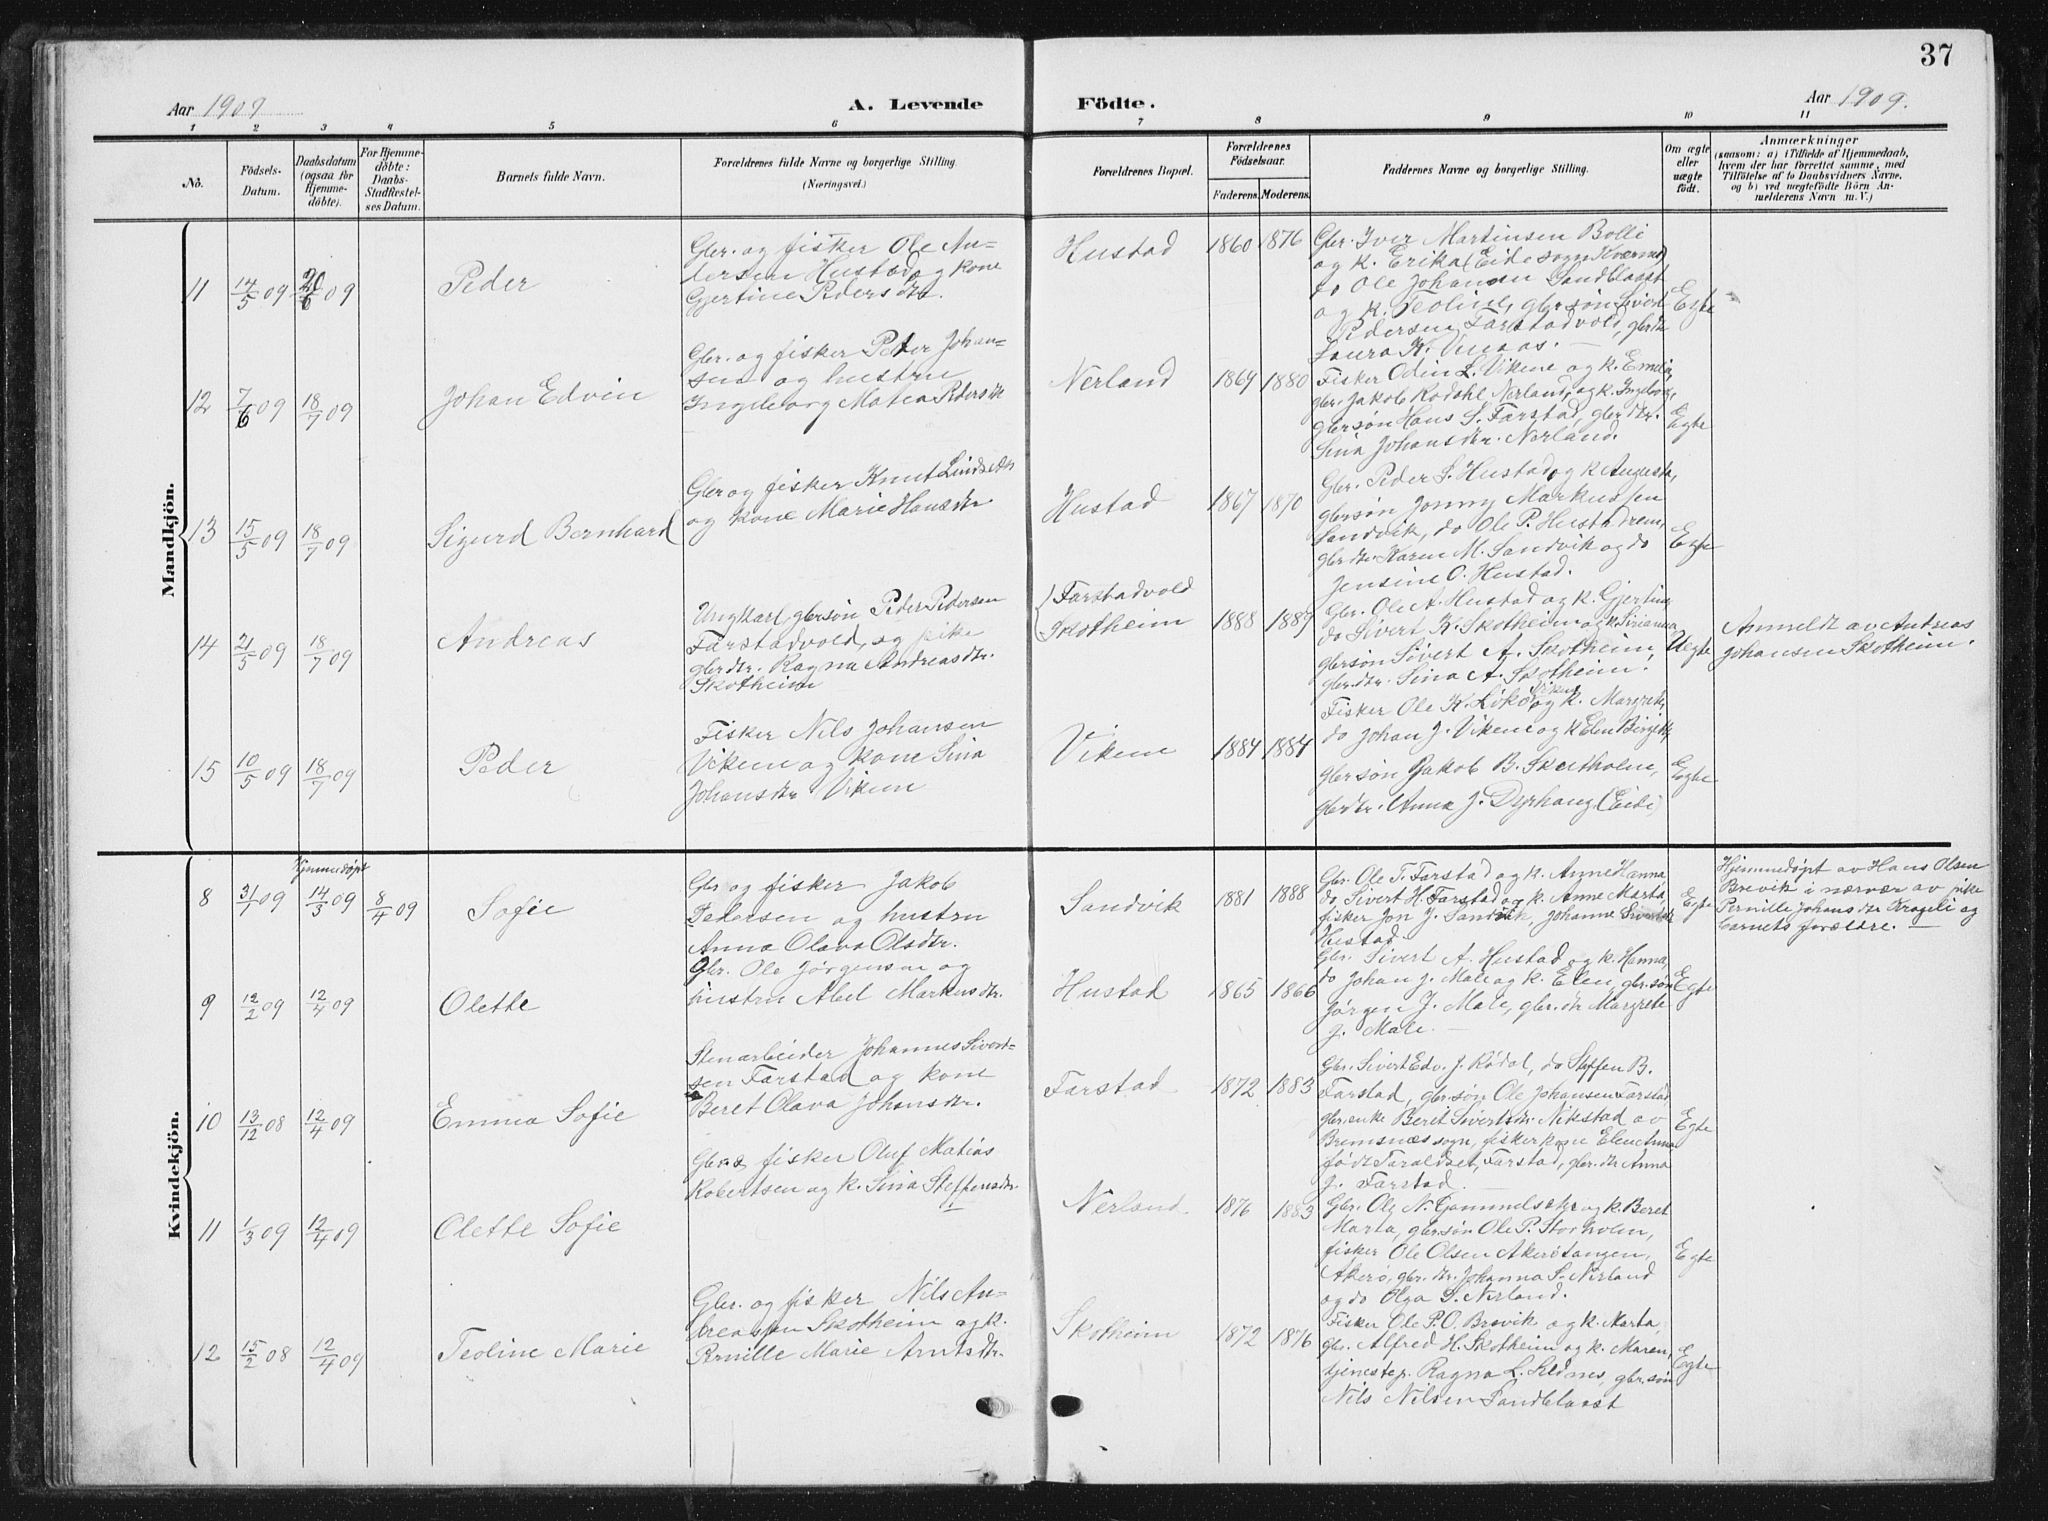 37
Aar 1909
A. Levende
Födte.
Aar 1909.
1 2 3 4 5 6 7 8 9 10 11
No.
Födsels-
Datum.
Daabsdatum
(ogsaa för
Hjemme-
döbte).
For Hjemme-
döbte:
Daabs-
Stadfæstel-
ses Datum.
Barnets fulde Navn.
Forældrenes fulde Navne og borgerlige Stilling.
(Næringsvei.)
Forældrenes Bopæl.
Forældrenes
Födselsaar.
Faderens. Moderens.
Faddernes Navne og borgerlige Stilling.
Om ægte
eller
uægte
födt.
Anmærkninger
(saasom: a) i Tilfælde af Hjemmedaab,
hvem der har forrettet samme, med
Tilföielse af to Daabsvidners Navne,
og b) ved uægtefödte Börn An-
melderens Navn m. V.)
Mandkjön.
11 14/5 09 20/6 09 Peder
Gbr. og fisker Ole An-
dersen Hustad og kone
Gjertine Pedersdtr.
Hustad 1860 1876
Gbr. Iver Martinsen Bolli
og k. Erika (Eide sogn Kværnes)
do Ole Johansen Sandblaast
og k. Teoline, gbrsøn Sivert
Pedersen Farstadvold, gbrdtr
Laura K. Vinaas.
Egte
12 7/6 09 18/7 09 Johan Edvin
Gbr. og fisker Peter Johan-
sen og hustru
Ingeborg Matea Pedersdtr
Nerland 1869 1880
Fisker Odin L. Vikene og k. Emelie,
gbr. Jakob Rødahl Nerland, og k. Ingeborg,
gbrsøn Hans S. Farstad, gbrdtr.
Sina Johansdtr. Nerland.
Egte
13 15/5 09 18/7 09 Sigurd Bernhard
Gbr og fisker Knut Lindseth
og kone Marie Hansdtr
Hustad 1867 1870
Gbr. Peder S. Hustad og k Augusta,
gbrsøn Jonny Markussen
Sandvik, do Ole P. Hustadrem,
gbrdtr. Karen M. Sandvik og do
Jensine O. Hustad.
Egte
14 21/5 09 18/7 09 Andreas
Ungkarl, gbrsøn Peder Pedersen
Farstadvold, og pike
gbrdtr. Ragna Andreasdtr.
Skotheim
Farstadvold
Skotheim 1888 1889
Gbr. Ole A. Hustad og k. Gjertine,
do Sivert K. Skotheim og k. Sirianna
gbrsøn Sivert A. Skotheim,
gbr.dtr. Sina A. Skotheim.
Uegte
Anmeldt av Andreas
Johansen Skotheim.
15 10/5 09 18/7 09 Peder
Fisker Nils Johansen
Vikene og kone Sina
Johansdtr Viken
Vikene 1884 1884
Fisker Ole K. Viken og k. Margrete,
do Johan J. Vikene og k Elen Birgitte,
gbrsøn Jakob B. Skutholm,
gbrdtr. Anna J. Dyrhaug (Eide)
Egte
Kvindekjön.
Hjemmedøpt
8 31/1 09 14/3 09 8/4 09 Sofie
Gbr og fisker Jakob
Pedersen og hustru
Anna Olava Olsdtr.
Sandvik 1881 1888
Gbr. Ole T. Farstad og k. Anne Hanna
do Sivert H. Farstad og k. Anne Marta,
fisker Jon J. Sandvik, Johanne Sivertsdtr
Hustad
Egte
Hjemmedøpt av Hans Olsen
Brevik i nærvær av pike
Pernille Johansdtr Krageli og
barnets forældre.
9 12/2 09 12/4 09 Olette
Gbr. Ole Jørgensen og
hustru Abel Markusdtr.
Hustad 1865 1866
Gbr. Sivert A. Hustad og k. Hanna,
do Johan J. Male og k. Elen, gbr.søn
Jørgen J. Male, gbr.dtr Margrete
J. Male.
Egte
10 13/12 08 12/4 09 Emma Sofie
Stenarbeider Johannes Sivert-
sen Farstad og kone
Beret Olava Johansdtr.
Farstad 1872 1883
Gbr. Sivert Edv. J. Rødal, do Steffen B.
Farstad, gbr.søn Ole Johansen Farstad
gbr.enke Beret Sivertsdtr. Nikstad av
Bremsnæs sogn, fiskerkone Elen Anna
født Taraldset, Farstad, gbr.dtr Anna
J. Farstad
Egte
11 1/3 09 12/4 09 Olette Sofie
Gbr. & fisker Oluf Matias
Robertsen og k. Sina Steffensdtr.
Nerland 1876 1883
Gbr. Ole N. Gammelsæter og k. Beret
Marta, gbrsøn Ole P. Storholm,
fisker Ole Olsen Akerøtangen,
Akerø, gbr.dtr. Johanna S. Nerland
og do Olga S. Nerland.
Egte
12 15/2 08 12/4 09 Teoline Marie
Gbr. og fisker Nils An-
dreassen Skotheim og k.
Pernille Marie Arntsdtr.
Skotheim 1872 1876
Fisker Ole P.O. Brevik og k. Marta,
gbr. Alfred H. Skotheim og k. Maren,
tjenestep. Ragna L. Sildnes, gbr.søn
Nils Nilsen Sandblaast
Egte